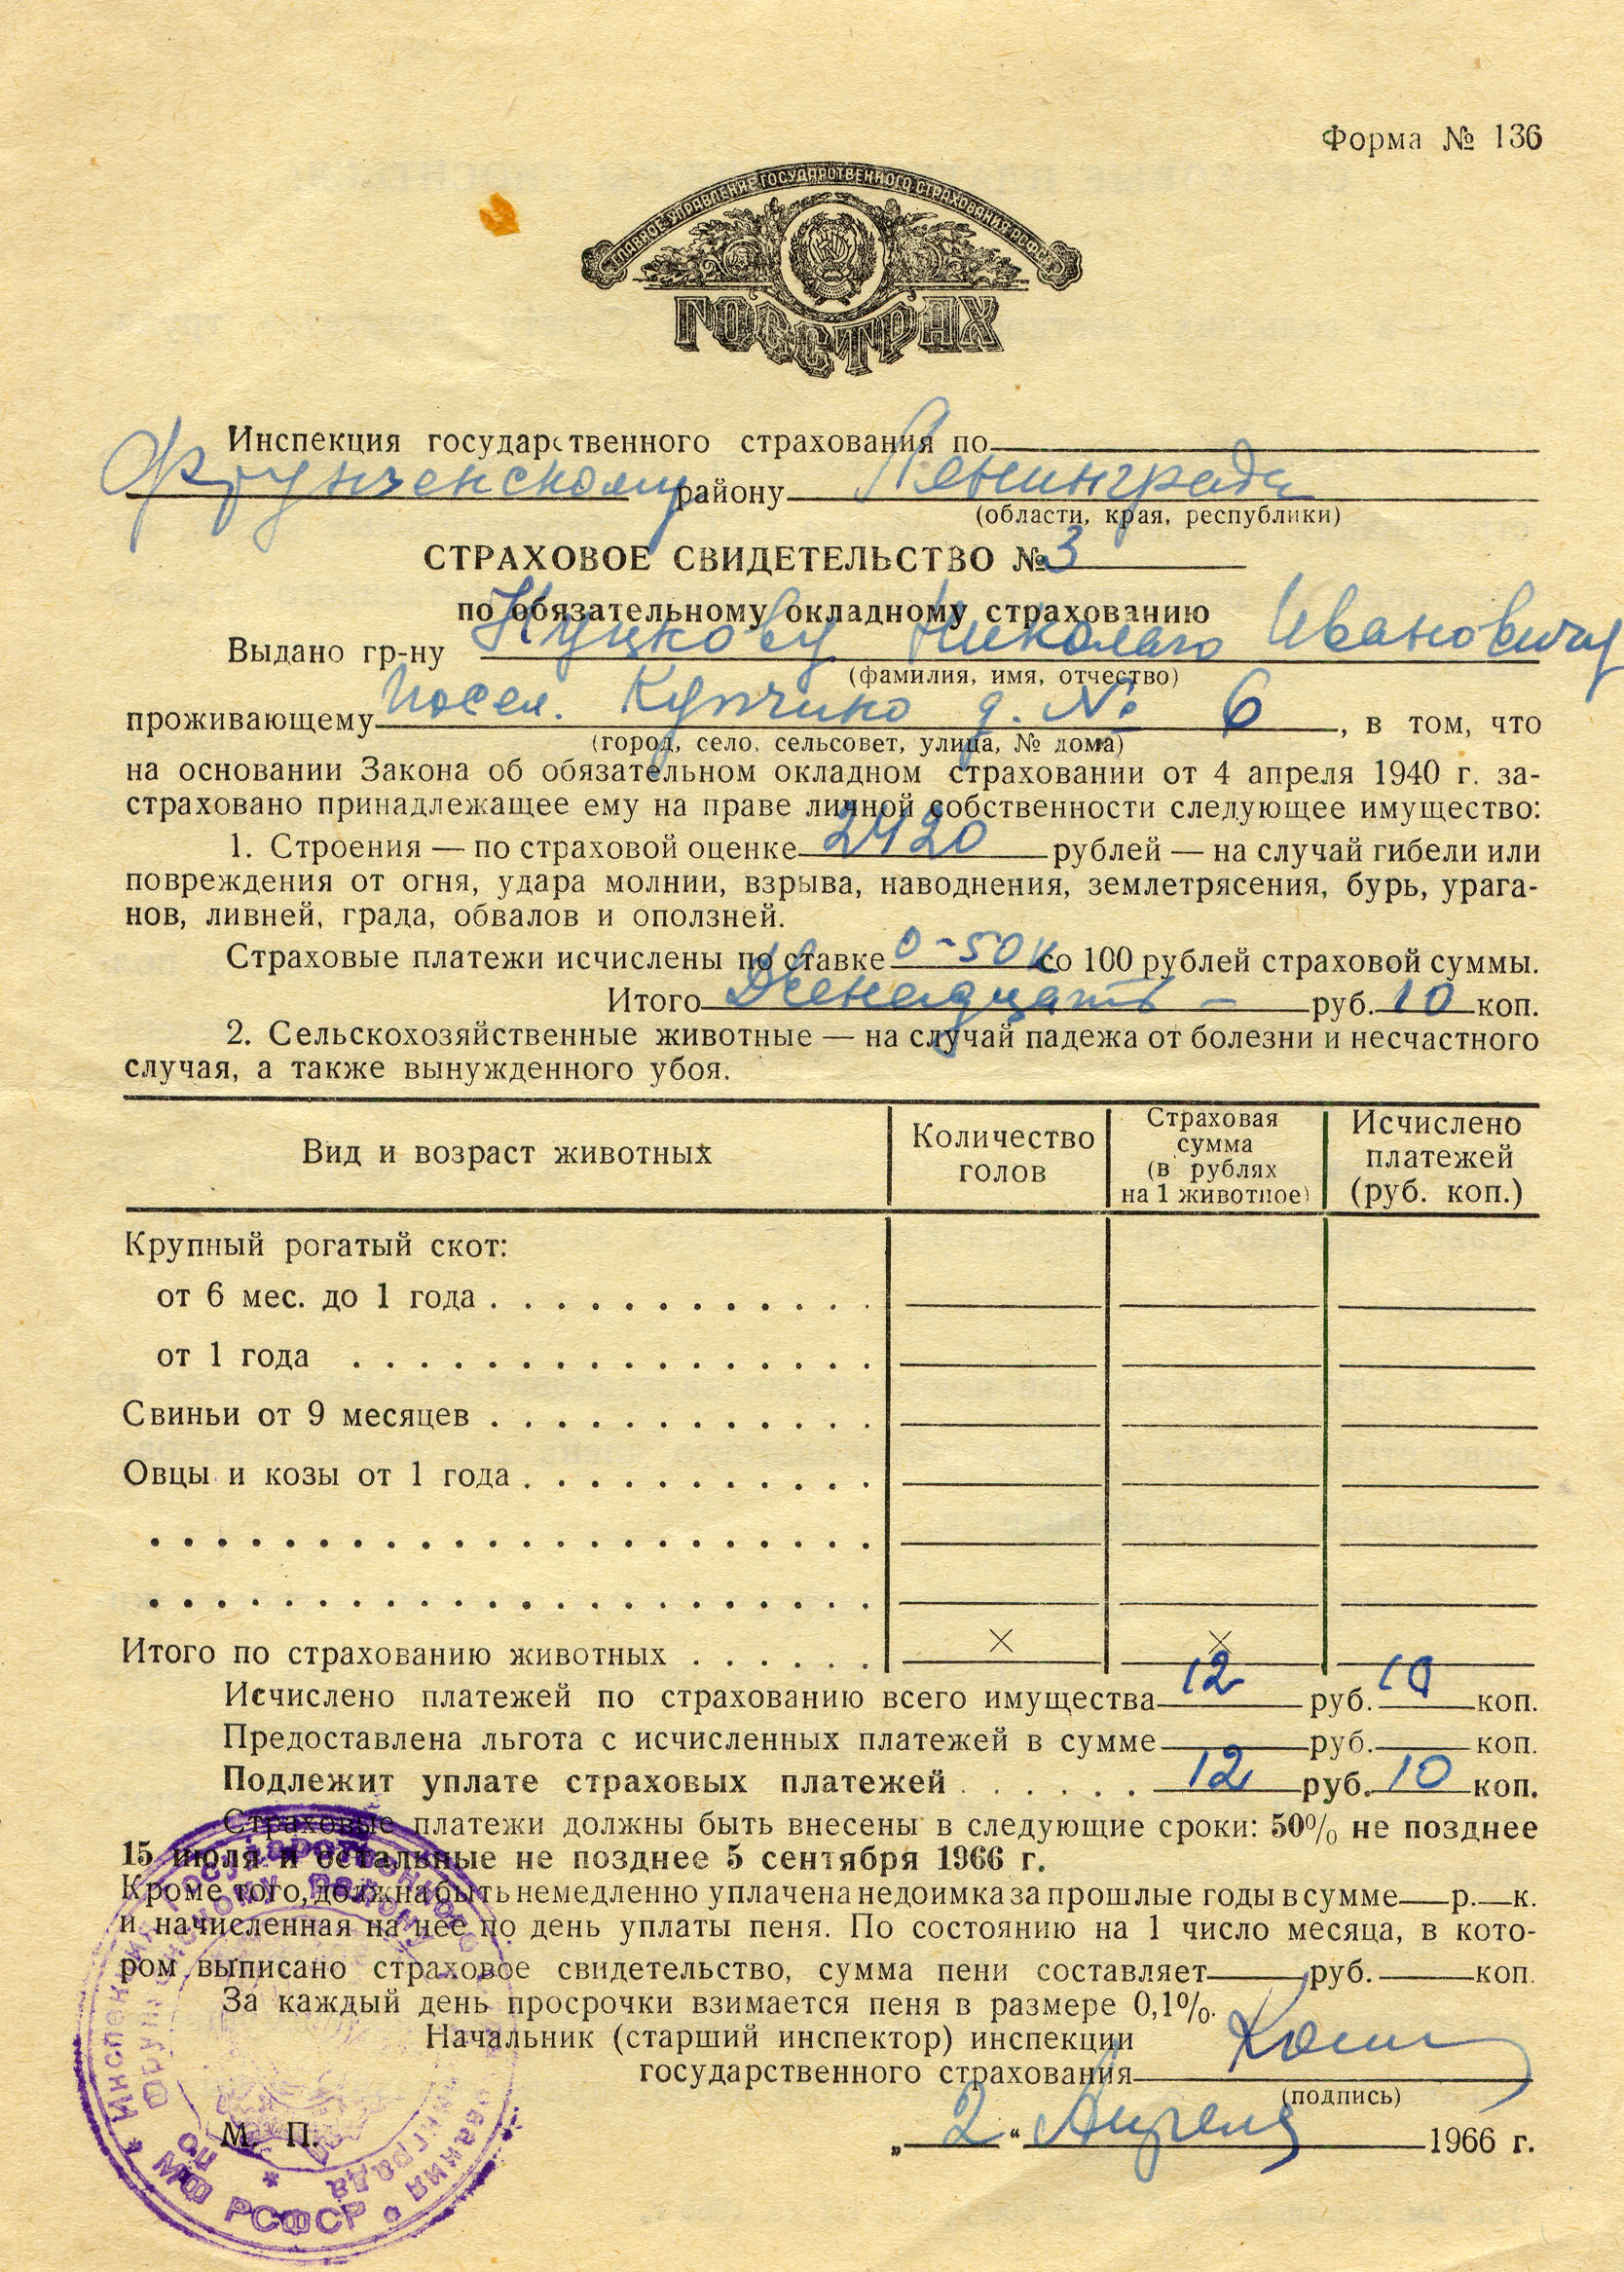 Форма № 136
ГЛАВНОЕ УПРАВЛЕНИЕ ГОСУДАРСТВЕННОГО СТРАХОВАНИЯ РСФСР
ГОССТРАХ
Инспекция государственного страхования по
Фрунзенскому району Ленинграда
(области, края, республики)
СТРАХОВОЕ СВИДЕТЕЛЬСТВО № 3
по обязательному окладному страхованию
Выдано гр-ну Куцкову Николаю Ивановичу
(фамилия, имя, отчество)
проживающему посел. Купчино д. № 6, в том, что
(город, село, сельсовет, улица, № дома)
на основании Закона об обязательном окладном страховании от 4 апреля 1940 г. за-
страховано принадлежащее ему на праве личной собственности следующее имущество:
1. Строения — по страховой оценке 2420 рублей — на случай гибели или
повреждения от огня, удара молнии, взрыва, наводнения, землетрясения, бурь, урага-
нов, ливней, града, обвалов и оползней.
Страховые платежи исчислены по ставке 0-50 к со 100 рублей страховой суммы.
Итого Двенадцать — руб. 10 коп.
2. Сельскохозяйственные животные — на случай падежа от болезни и несчастного
случая, а также вынужденного убоя.
Вид и возраст животных
Количество голов
Страховая сумма (в рублях на 1 животное)
Исчислено платежей (руб. коп.)
Крупный рогатый скот:
от 6 мес. до 1 года . . . . . . . . . . . .
от 1 года . . . . . . . . . . . . . . . .
Свиньи от 9 месяцев . . . . . . . . . . . .
Овцы и козы от 1 года . . . . . . . . . . .
Итого по страхованию животных . . . . . . × ×
Исчислено платежей по страхованию всего имущества 12 руб. 10 коп.
Предоставлена льгота с исчисленных платежей в сумме руб. коп.
Подлежит уплате страховых платежей . . . . . . 12 руб. 10 коп.
Страховые платежи должны быть внесены в следующие сроки: 50% не позднее
15 июля и остальные не позднее 5 сентября 1966 г.
Кроме того, должна быть немедленно уплачена недоимка за прошлые годы в сумме р. к.
и начисленная на нее по день уплаты пеня. По состоянию на 1 число месяца, в кото-
ром выписано страховое свидетельство, сумма пени составляет руб. коп.
За каждый день просрочки взимается пеня в размере 0,1%.
Начальник (старший инспектор) инспекции
государственного страхования
(подпись)
М. П.
„ 2 “ Апреля 1966 г.
МФ РСФСР